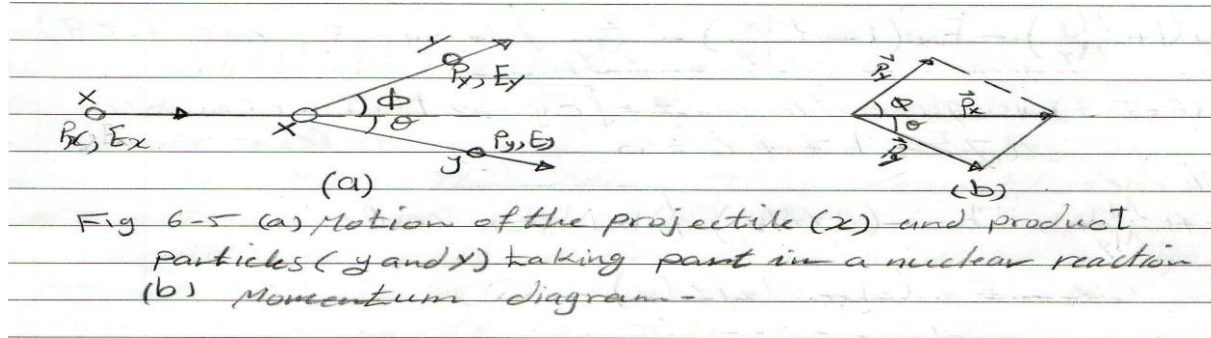 Y
P_Y, E_Y
x
P_x, E_x
X
Φ
θ
P_y, E_y
y
(a)
P⃗_Y
Φ
P⃗_x
θ
(b)
Fig 6-5 (a) Motion of the projectile (x) and product
particles (y and Y) taking part in a nuclear reaction
(b) Momentum diagram-